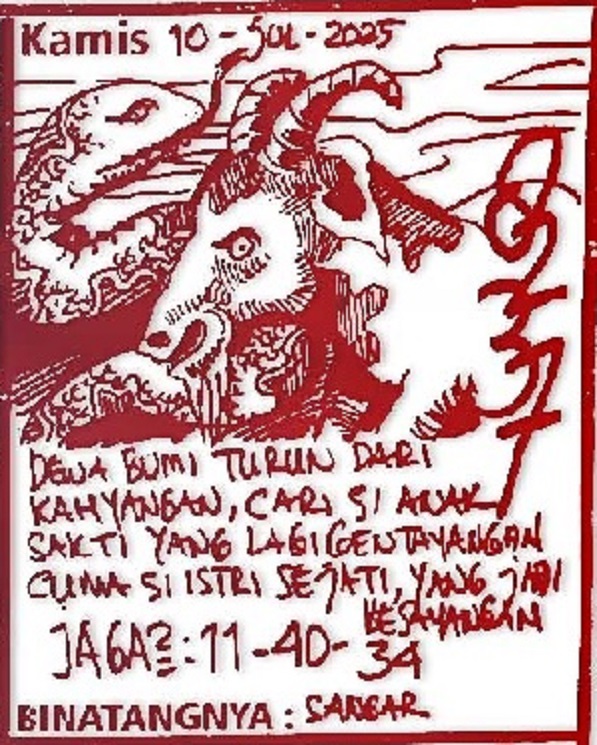 Kamis 10 - JUL - 2025
DEWA BUMI TURUN DARI
KAHYANGAN, CARI SI ANAK
SAKTI YANG LAGI GENTAYANGAN
CUMA SI ISTRI SEJATI, YANG JADI
KESAYANGAN
JAGA2 : 11 - 40 - 34
BINATANGNYA : SANGAR